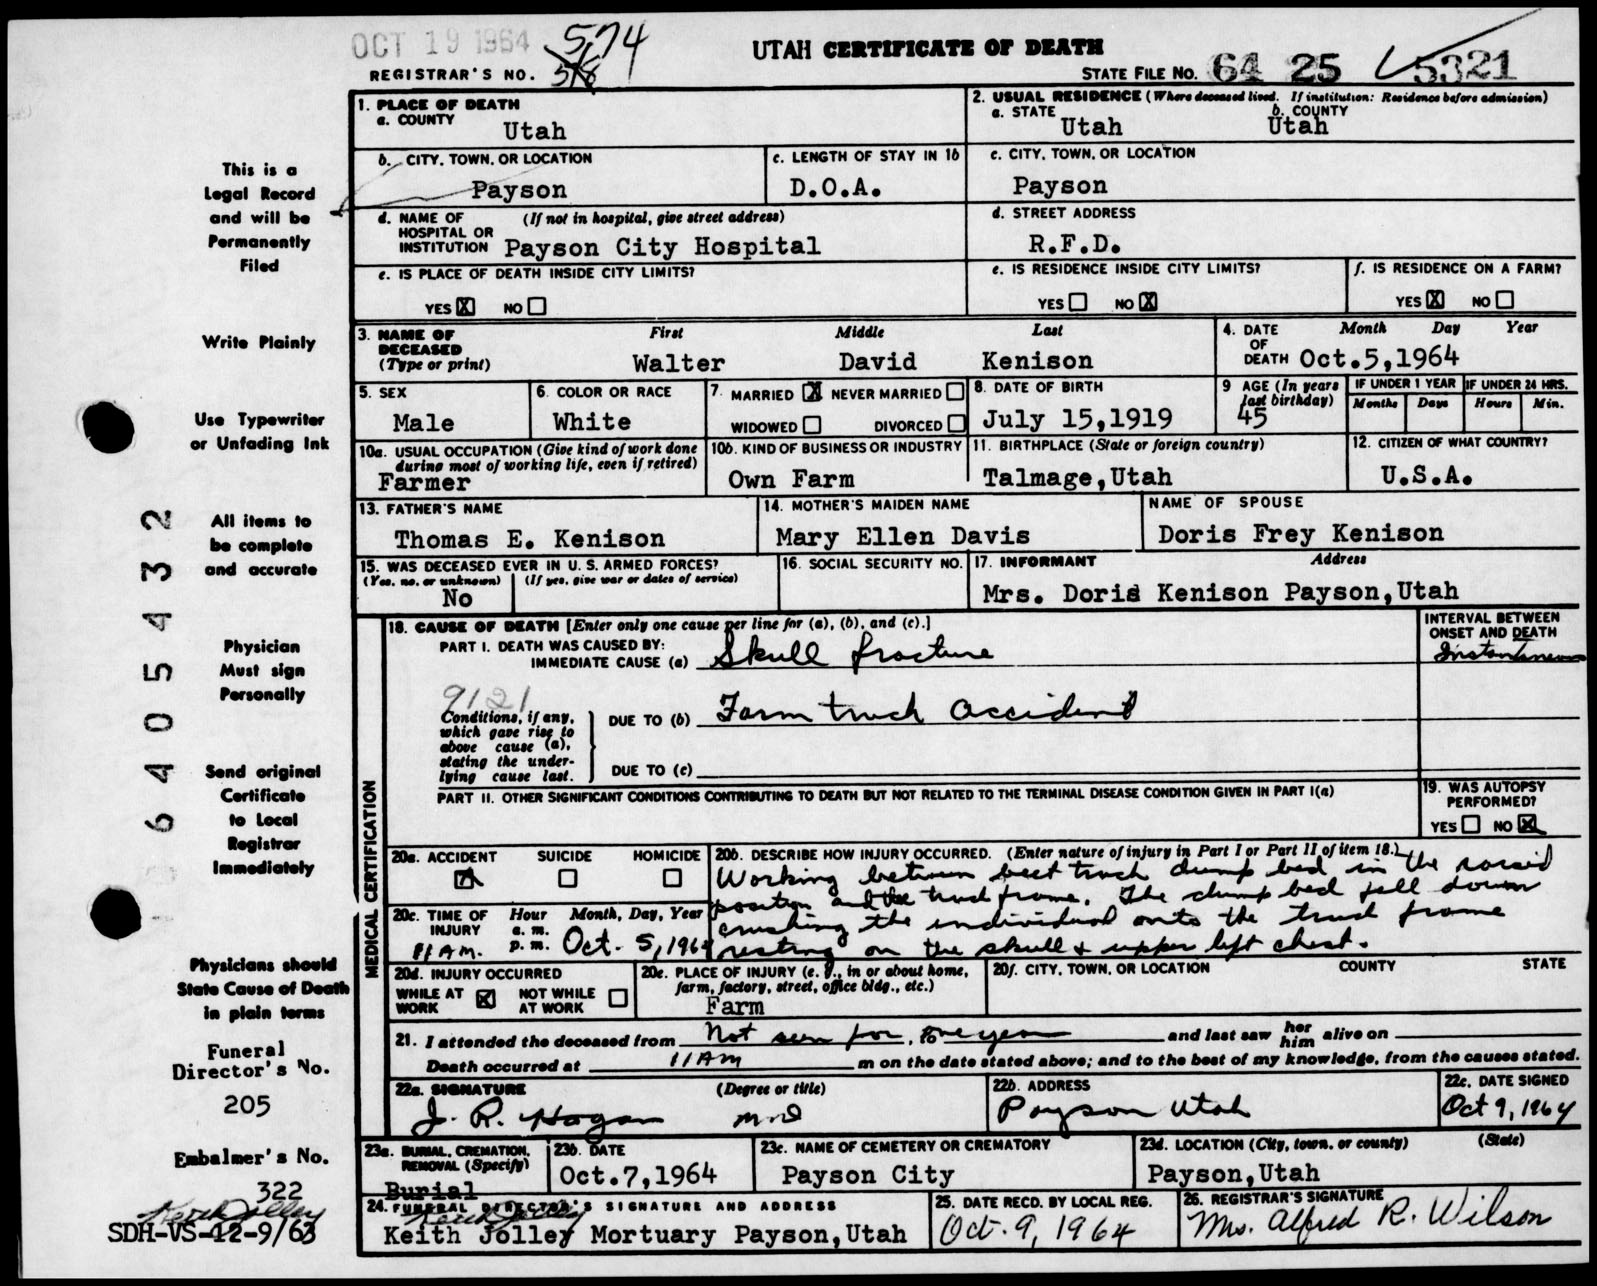 OCT 19 1964
574
578
REGISTRAR'S NO.
UTAH CERTIFICATE OF DEATH
STATE FILE NO. 64 25 5321
1. PLACE OF DEATH
a. COUNTY
Utah
2. USUAL RESIDENCE (Where deceased lived. If institution: Residence before admission)
a. STATE
Utah
b. COUNTY
Utah
b. CITY, TOWN, OR LOCATION
Payson
c. LENGTH OF STAY IN 1b
D.O.A.
c. CITY, TOWN, OR LOCATION
Payson
d. NAME OF HOSPITAL OR INSTITUTION
(If not in hospital, give street address)
Payson City Hospital
d. STREET ADDRESS
R.F.D.
e. IS PLACE OF DEATH INSIDE CITY LIMITS?
YES X NO
e. IS RESIDENCE INSIDE CITY LIMITS?
YES NO X
f. IS RESIDENCE ON A FARM?
YES X NO
3. NAME OF DECEASED
(Type or print)
First Middle Last
Walter David Kenison
4. DATE OF DEATH
Month Day Year
Oct.5,1964
5. SEX
Male
6. COLOR OR RACE
White
7. MARRIED X NEVER MARRIED
WIDOWED DIVORCED
8. DATE OF BIRTH
July 15,1919
9 AGE (In years last birthday)
45
IF UNDER 1 YEAR
Months Days
IF UNDER 24 HRS.
Hours Min.
10a. USUAL OCCUPATION (Give kind of work done during most of working life, even if retired)
Farmer
10b. KIND OF BUSINESS OR INDUSTRY
Own Farm
11. BIRTHPLACE (State or foreign country)
Talmage,Utah
12. CITIZEN OF WHAT COUNTRY?
U.S.A.
13. FATHER'S NAME
Thomas E. Kenison
14. MOTHER'S MAIDEN NAME
Mary Ellen Davis
NAME OF SPOUSE
Doris Frey Kenison
15. WAS DECEASED EVER IN U. S. ARMED FORCES?
(Yes, no, or unknown) (If yes, give war or dates of service)
No
16. SOCIAL SECURITY NO.
17. INFORMANT Address
Mrs. Doris Kenison Payson,Utah
MEDICAL CERTIFICATION
18. CAUSE OF DEATH [Enter only one cause per line for (a), (b), and (c).]
PART I. DEATH WAS CAUSED BY:
IMMEDIATE CAUSE (a) Skull fracture
INTERVAL BETWEEN ONSET AND DEATH
Instantaneous
9121
Conditions, if any, which gave rise to above cause (a), stating the underlying cause last.
DUE TO (b) Farm truck accident
DUE TO (c)
PART II. OTHER SIGNIFICANT CONDITIONS CONTRIBUTING TO DEATH BUT NOT RELATED TO THE TERMINAL DISEASE CONDITION GIVEN IN PART I(a)
19. WAS AUTOPSY PERFORMED?
YES NO X
20a. ACCIDENT SUICIDE HOMICIDE
20b. DESCRIBE HOW INJURY OCCURRED. (Enter nature of injury in Part I or Part II of item 18.)
Working between beet truck dump bed in the raised
position and the truck frame. The dump bed fell down
crushing the individual onto the truck frame
resting on the skull & upper left chest.
20c. TIME OF INJURY
Hour Month, Day, Year
a. m.
p. m.
11 AM. Oct. 5, 1964
20d. INJURY OCCURRED
WHILE AT WORK X NOT WHILE AT WORK
20e. PLACE OF INJURY (e. g., in or about home, farm, factory, street, office bldg., etc.)
Farm
20f. CITY, TOWN, OR LOCATION COUNTY STATE
21. I attended the deceased from Not seen for, to one year and last saw her him alive on
Death occurred at 11 AM m on the date stated above; and to the best of my knowledge, from the causes stated.
22a. SIGNATURE (Degree or title)
J. R. Hogan MD
22b. ADDRESS
Payson Utah
22c. DATE SIGNED
Oct 9, 1964
23a. BURIAL, CREMATION, REMOVAL (Specify)
Burial
23b. DATE
Oct.7,1964
23c. NAME OF CEMETERY OR CREMATORY
Payson City
23d. LOCATION (City, town, or county) (State)
Payson,Utah
24. FUNERAL DIRECTOR'S SIGNATURE AND ADDRESS
Keith Jolley
Keith Jolley Mortuary Payson,Utah
25. DATE RECD. BY LOCAL REG.
Oct. 9, 1964
26. REGISTRAR'S SIGNATURE
Mrs. Alfred R. Wilson
This is a
Legal Record
and will be
Permanently
Filed
Write Plainly
Use Typewriter
or Unfading Ink
All items to
be complete
and accurate
Physician
Must sign
Personally
Send original
Certificate
to Local
Registrar
Immediately
Physicians should
State Cause of Death
in plain terms
Funeral
Director's No.
205
Embalmer's No.
322
Keith Jolley
SDH-VS-12-9/63
6405432